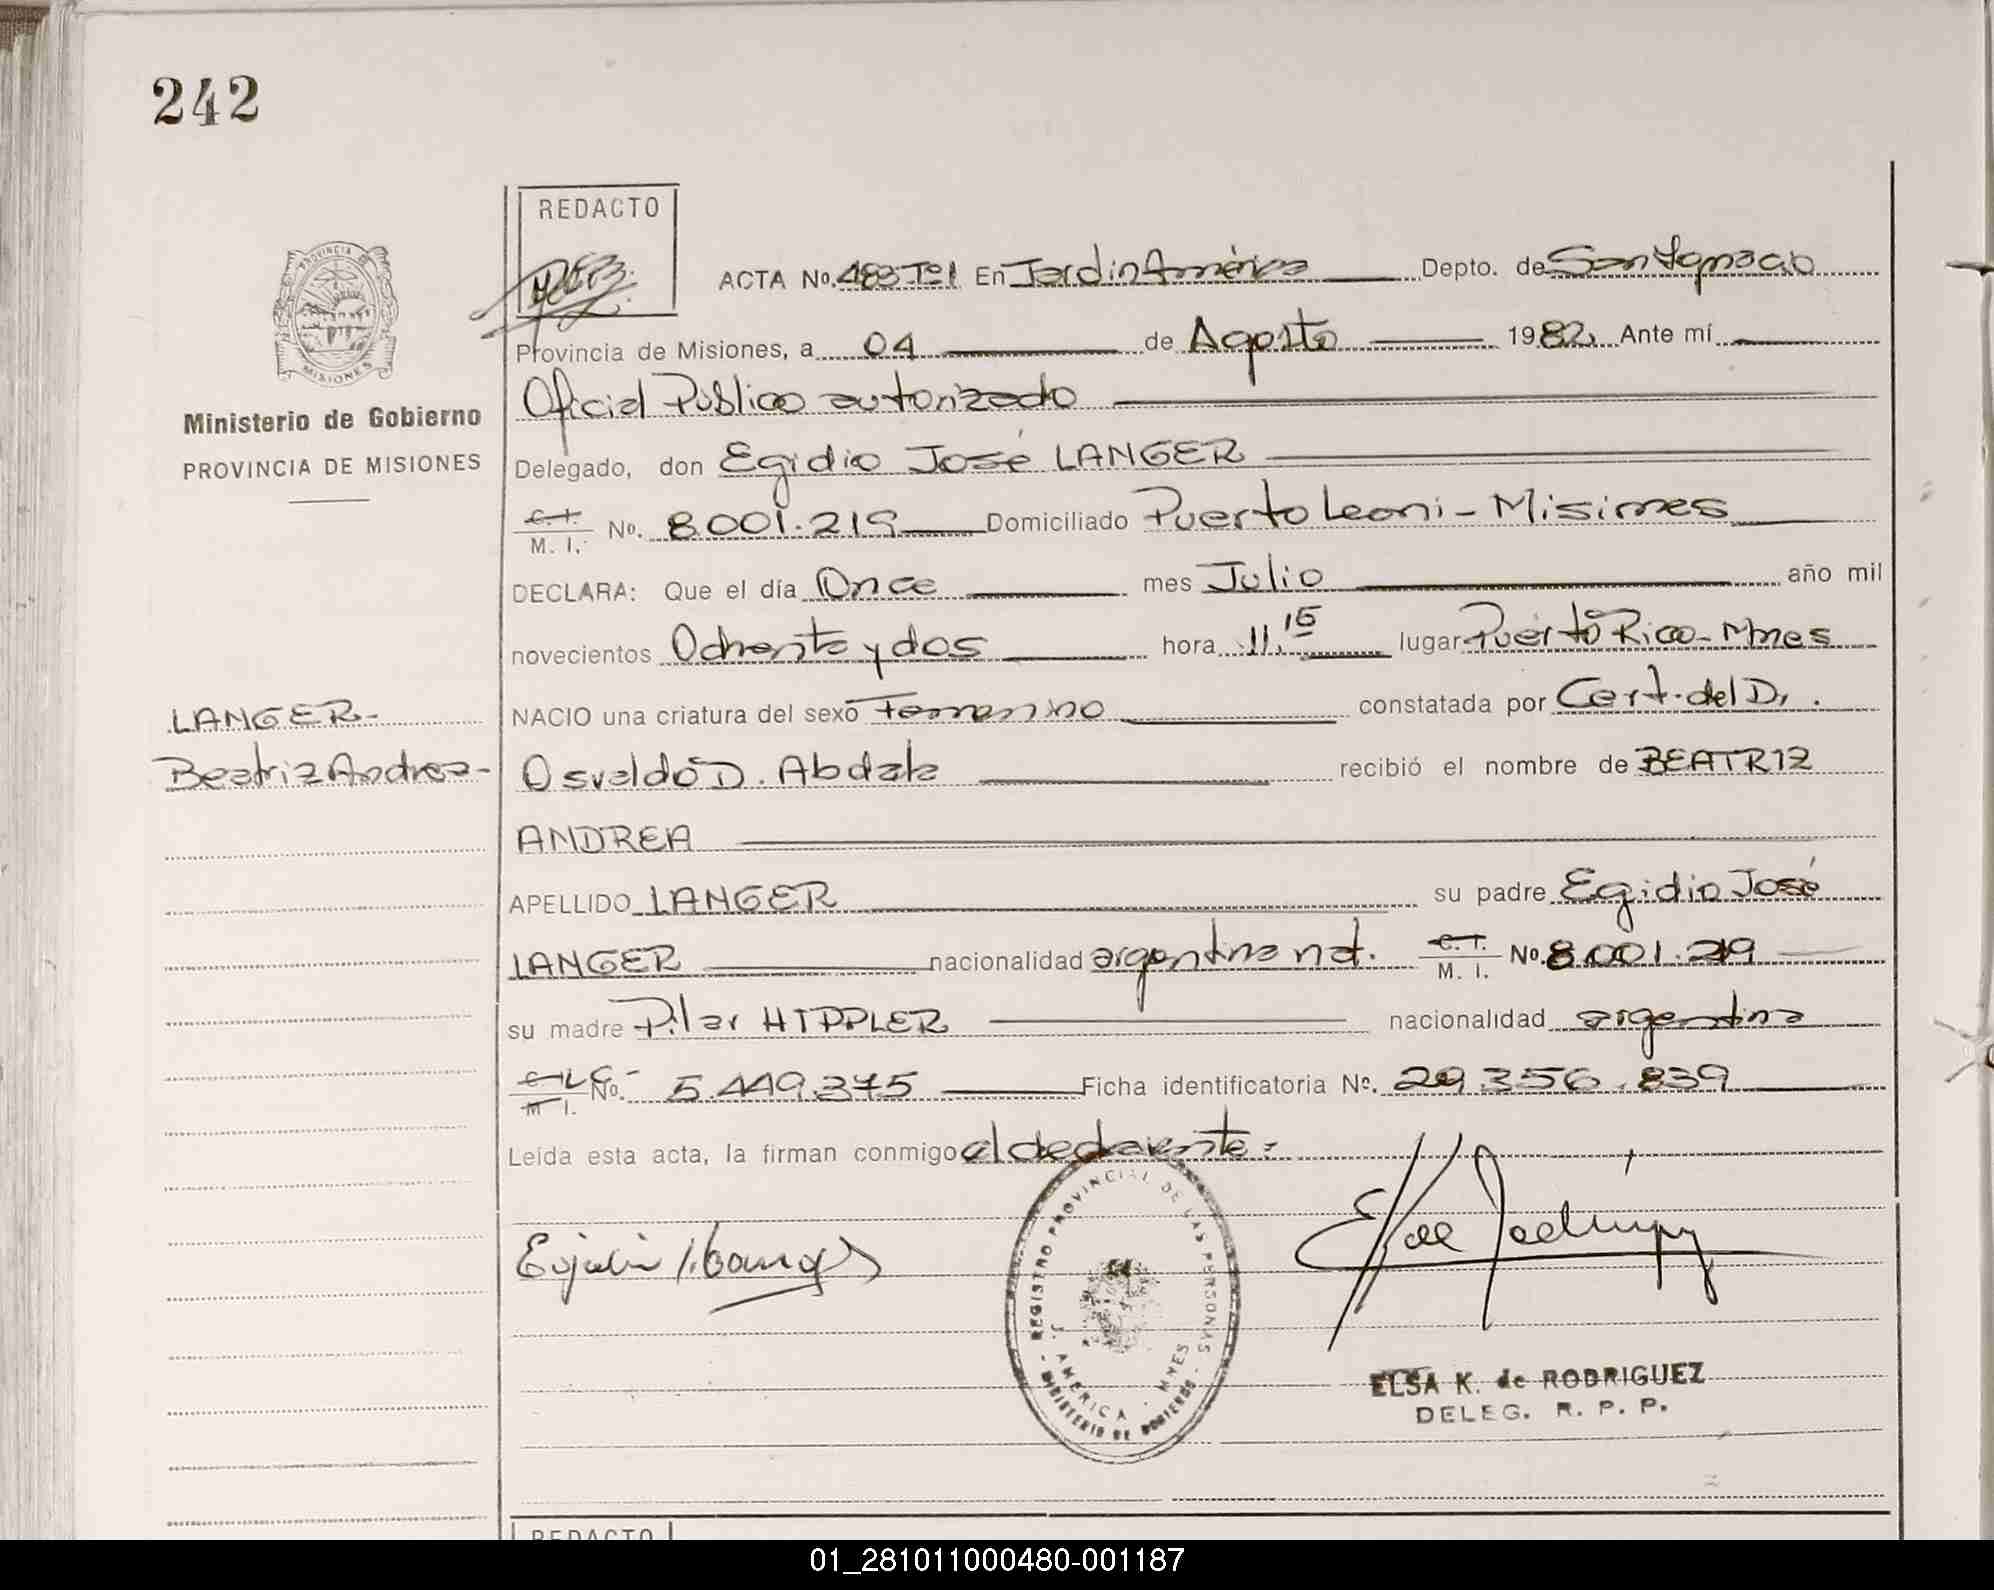 242
REDACTO
PROVINCIA
MISIONES
ACTA No. 483 Tº1 En Jardin América Depto. de San Ignacio
Provincia de Misiones, a 04 de Agosto 1982 Ante mí
Ministerio de Gobierno
PROVINCIA DE MISIONES
Oficial Público autorizado
Delegado, don Egidio José LANGER
C. I. M. I. No. 8.001.219 Domiciliado Puerto Leoni - Misiones
DECLARA: Que el día Once mes Julio año mil
novecientos Ochenta y dos hora 11,15 lugar Puerto Rico - Mnes
LANGER-
Beatriz Andrea-
NACIO una criatura del sexo Femenino constatada por Cert. del Dr.
Osvaldo D. Abdala recibió el nombre de BEATRIZ
ANDREA
APELLIDO LANGER su padre Egidio José
LANGER nacionalidad argentina nat. C. I. M. I. No. 8.001.219
su madre Pilar HIPPLER nacionalidad argentina
C. I. L.C.- M I. No. 5.449.375 Ficha identificatoria Nº. 29.356.839
Leída esta acta, la firman conmigo el declarante.-
REGISTRO PROVINCIAL DE LAS PERSONAS
J. AMERICA - MNES
- MINISTERIO DE GOBIERNO -
ELSA K. de RODRIGUEZ
DELEG. R. P. P.
REDACTO
01_281011000480-001187